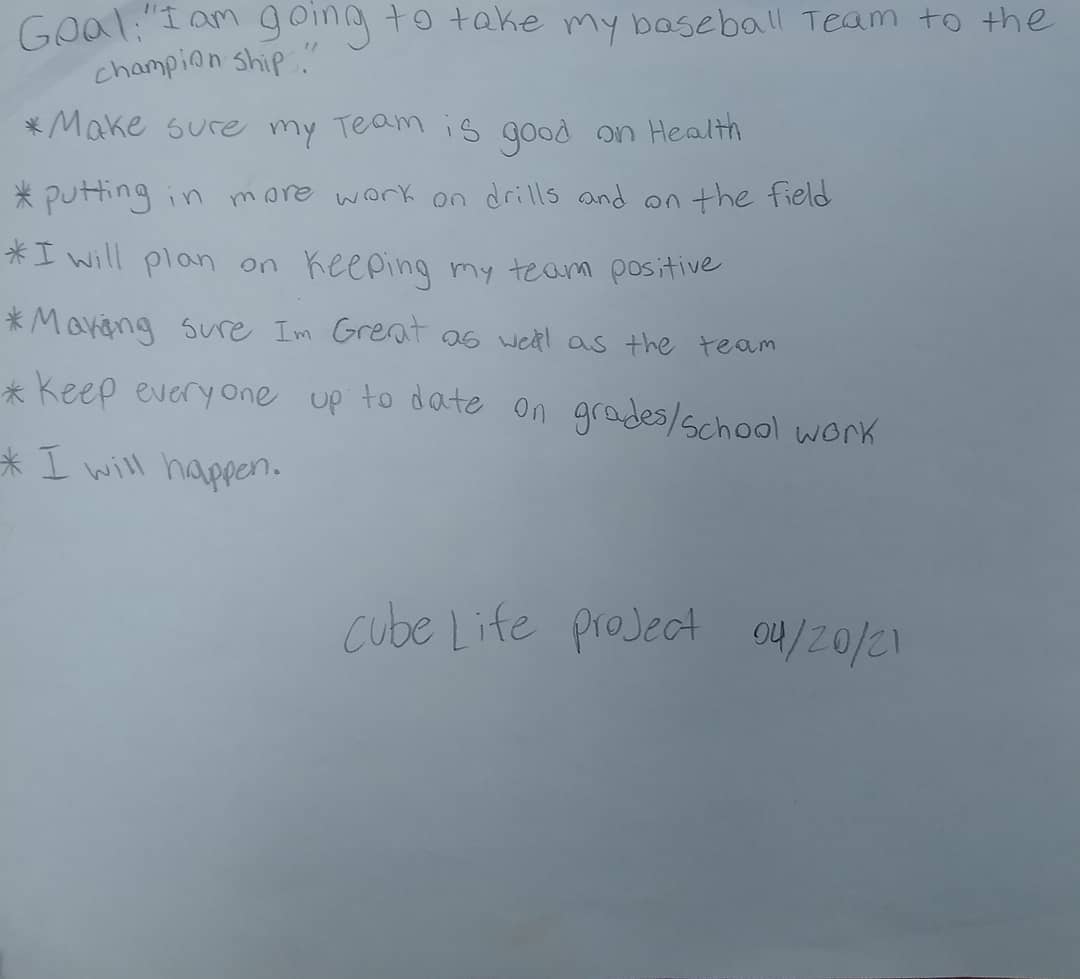 Goal: "I am going to take my baseball Team to the
champion ship."
* Make sure my Team is good on Health
* putting in more work on drills and on the field
* I will plan on Keeping my team positive
* Making sure Im Great as well as the team
* Keep everyone up to date on grades/school work
* I will happen.
cube Life project 04/20/21